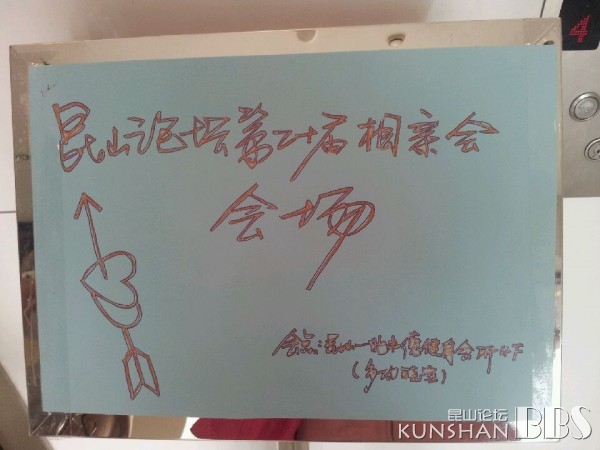 昆山论坛第二十届相亲会
会场
会点:昆山一站
(多功能室)
4
昆山论坛
KUNSHAN BBS